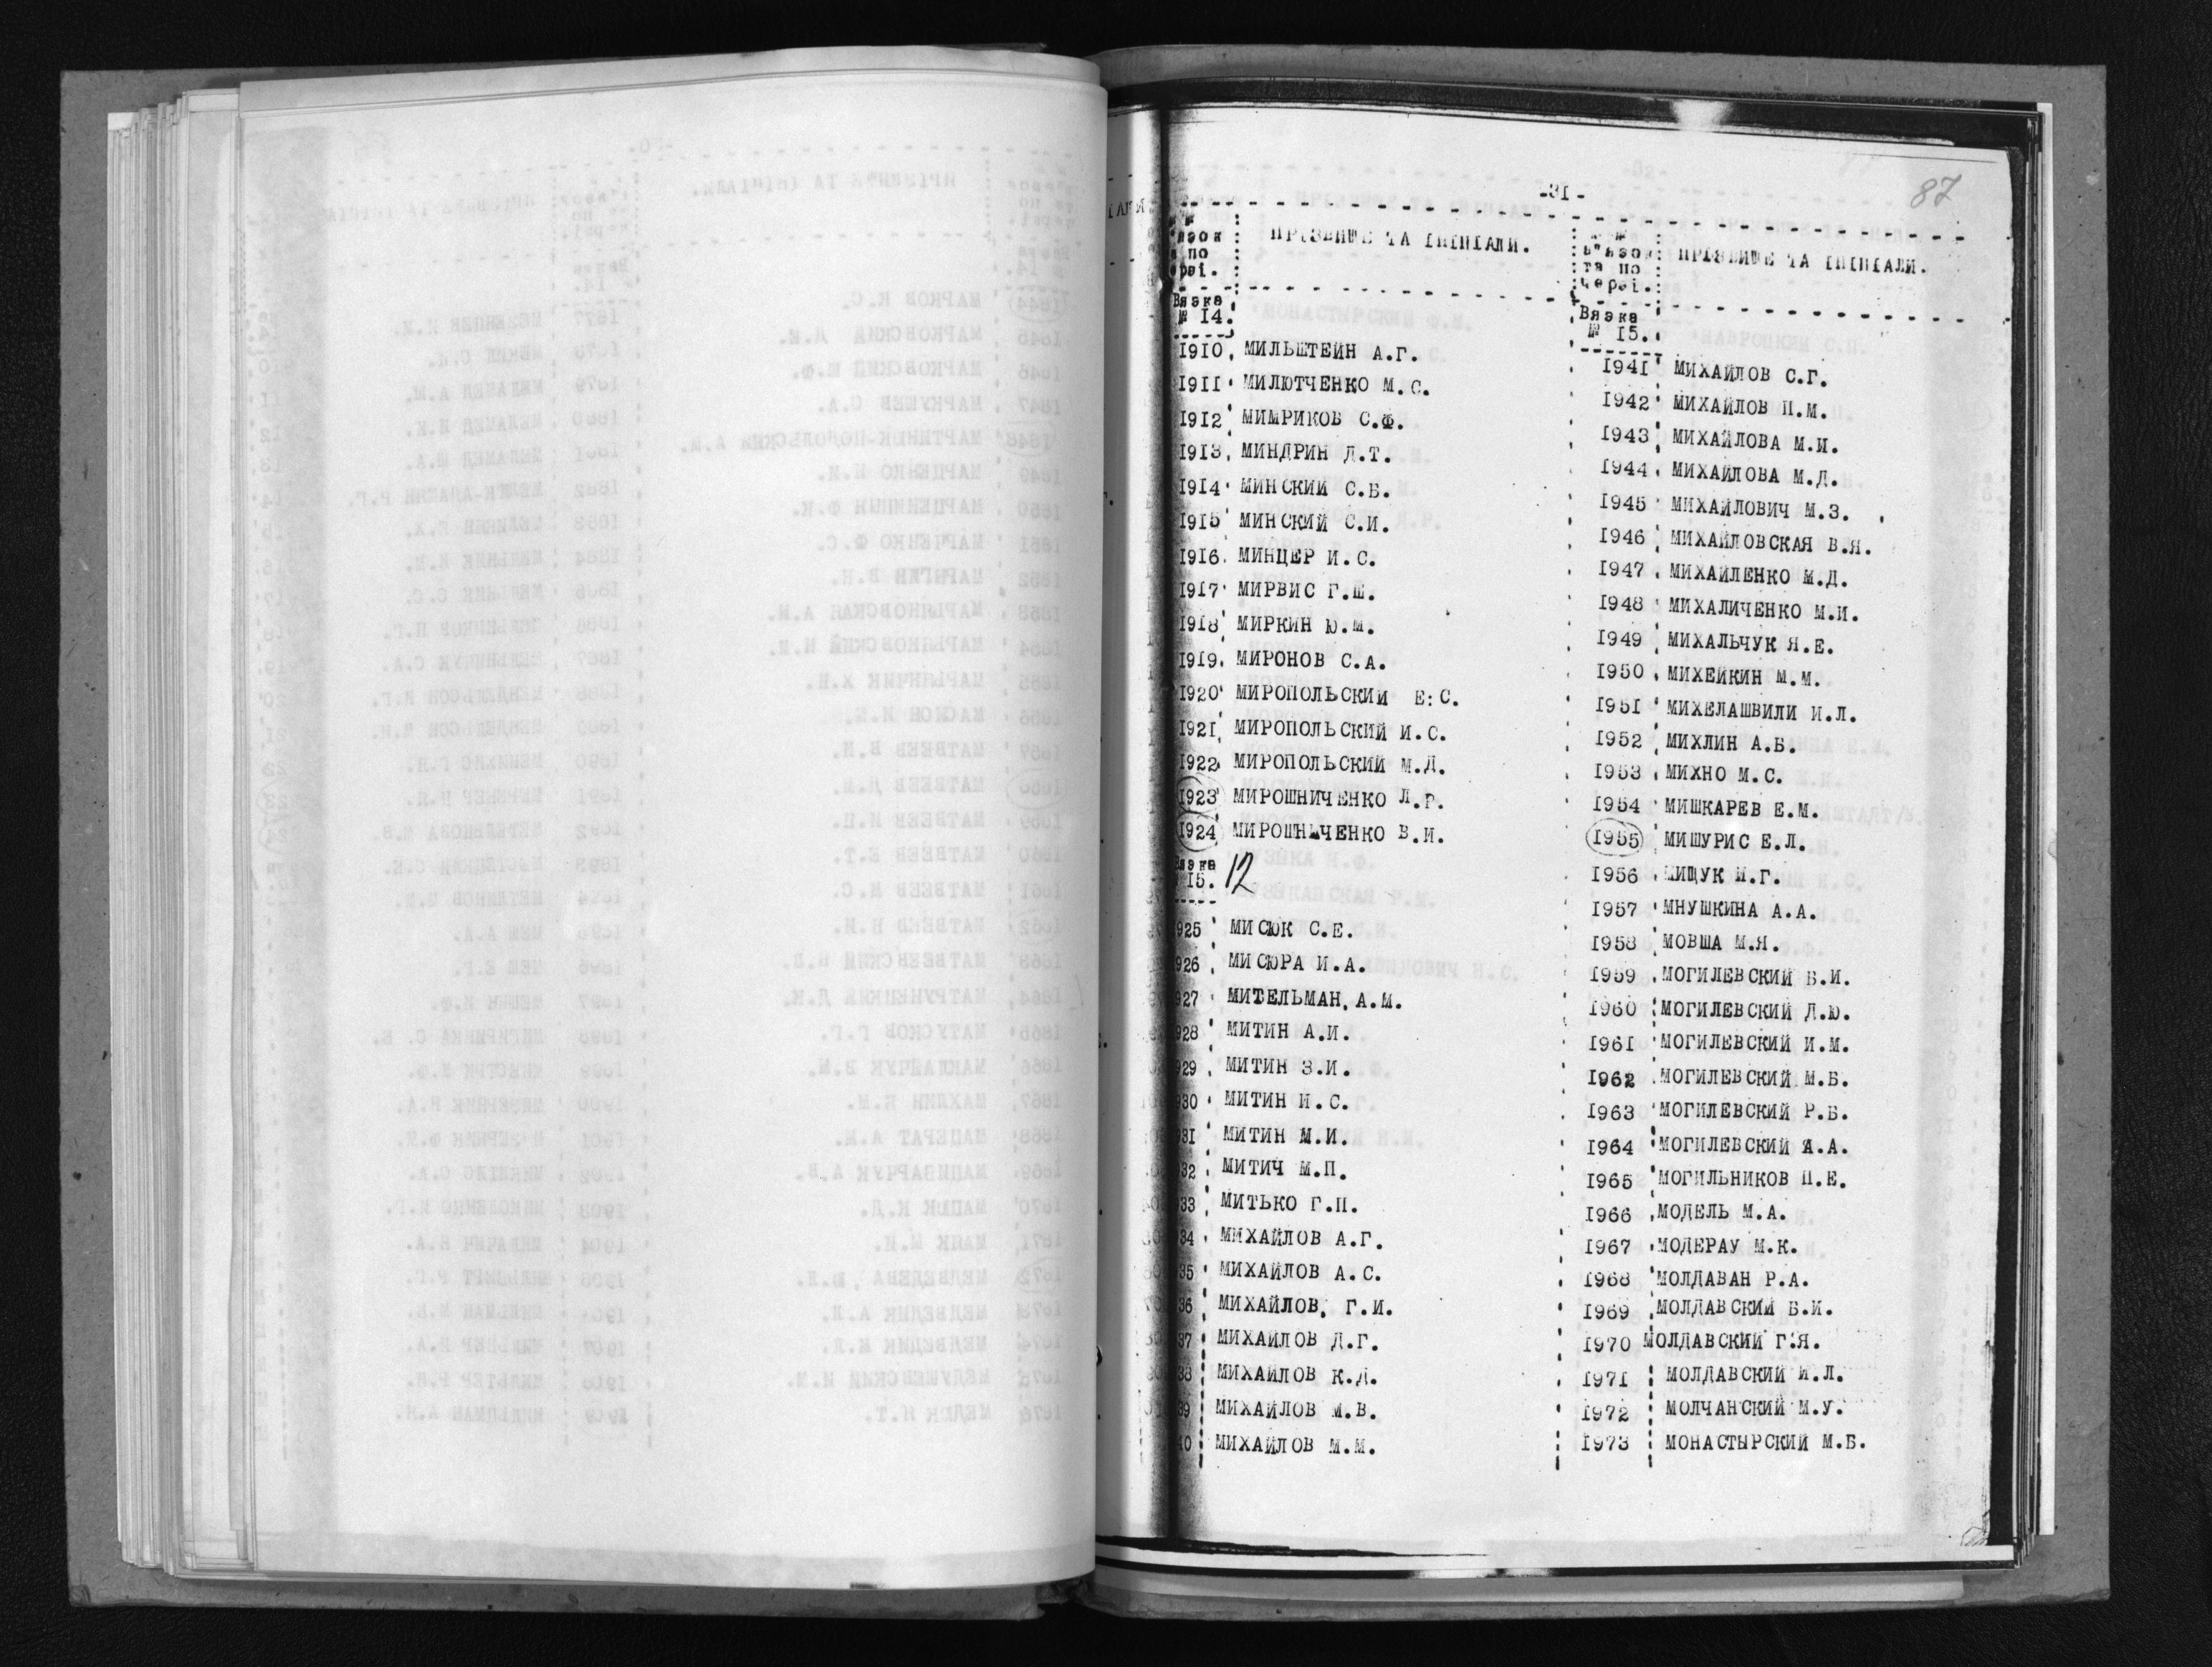 87
-31-
ПРІЗВИЩЕ ТА ІНІЦІАЛИ.
Вязка
№ 14.
1910 МИЛЬШТЕЙН А.Г.
1911 МИЛЮТЧЕНКО М.С.
1912 МИМРИКОВ С.Ф.
1913 МИНДРИН Д.Т.
1914 МИНСКИЙ С.Б.
1915 МИНСКИЙ С.И.
1916 МИНЦЕР И.С.
1917 МИРВИС Г.Ш.
1918 МИРКИН Ю.М.
1919 МИРОНОВ С.А.
1920 МИРОПОЛЬСКИЙ Е:С.
1921 МИРОПОЛЬСКИЙ И.С.
1922 МИРОПОЛЬСКИЙ М.Д.
1923 МИРОШНИЧЕНКО Л.Р.
1924 МИРОШНИЧЕНКО В.И.
Вязка
15. 12
925 МИСЮК С.Е.
926 МИСЮРА И.А.
927 МИТЕЛЬМАН, А.М.
928 МИТИН А.И.
929 МИТИН З.И.
930 МИТИН И.С.
931 МИТИН М.И.
932 МИТИЧ М.П.
933 МИТЬКО Г.П.
34 МИХАЙЛОВ А.Г.
35 МИХАЙЛОВ А.С.
36 МИХАЙЛОВ, Г.И.
37 МИХАЙЛОВ Д.Г.
38 МИХАЙЛОВ К.Д.
39 МИХАЙЛОВ М.В.
40 МИХАЙЛОВ М.М.
в"язок
та по
черзі.
ПРІЗВИЩЕ ТА ІНІЦІАЛИ.
Вязка
№ 15.
1941 МИХАЙЛОВ С.Г.
1942 МИХАЙЛОВ П.М.
1943 МИХАЙЛОВА М.И.
1944 МИХАЙЛОВА М.Д.
1945 МИХАЙЛОВИЧ М.З.
1946 МИХАЙЛОВСКАЯ В.Я.
1947 МИХАЙЛЕНКО М.Д.
1948 МИХАЛИЧЕНКО М.И.
1949 МИХАЛЬЧУК Я.Е.
1950 МИХЕЙКИН М.М.
1951 МИХЕЛАШВИЛИ И.Л.
1952 МИХЛИН А.Б.
1953 МИХНО М.С.
1954 МИШКАРЕВ Е.М.
1955 МИШУРИС Е.Л.
1956 МИЩУК И.Г.
1957 МНУШКИНА А.А.
1958 МОВША М.Я.
1959 МОГИЛЕВСКИЙ Б.И.
1960 МОГИЛЕВСКИЙ Д.Ю.
1961 МОГИЛЕВСКИЙ И.М.
1962 МОГИЛЕВСКИЙ М.Б.
1963 МОГИЛЕВСКИЙ Р.Б.
1964 МОГИЛЕВСКИЙ Я.А.
1965 МОГИЛЬНИКОВ П.Е.
1966 МОДЕЛЬ М.А.
1967 МОДЕРАУ М.К.
1968 МОЛДАВАН Р.А.
1969 МОЛДАВСКИЙ Б.И.
1970 МОЛДАВСКИЙ Г.Я.
1971 МОЛДАВСКИЙ И.Л.
1972 МОЛЧАНСКИЙ М.У.
1973 МОНАСТЫРСКИЙ М.Б.